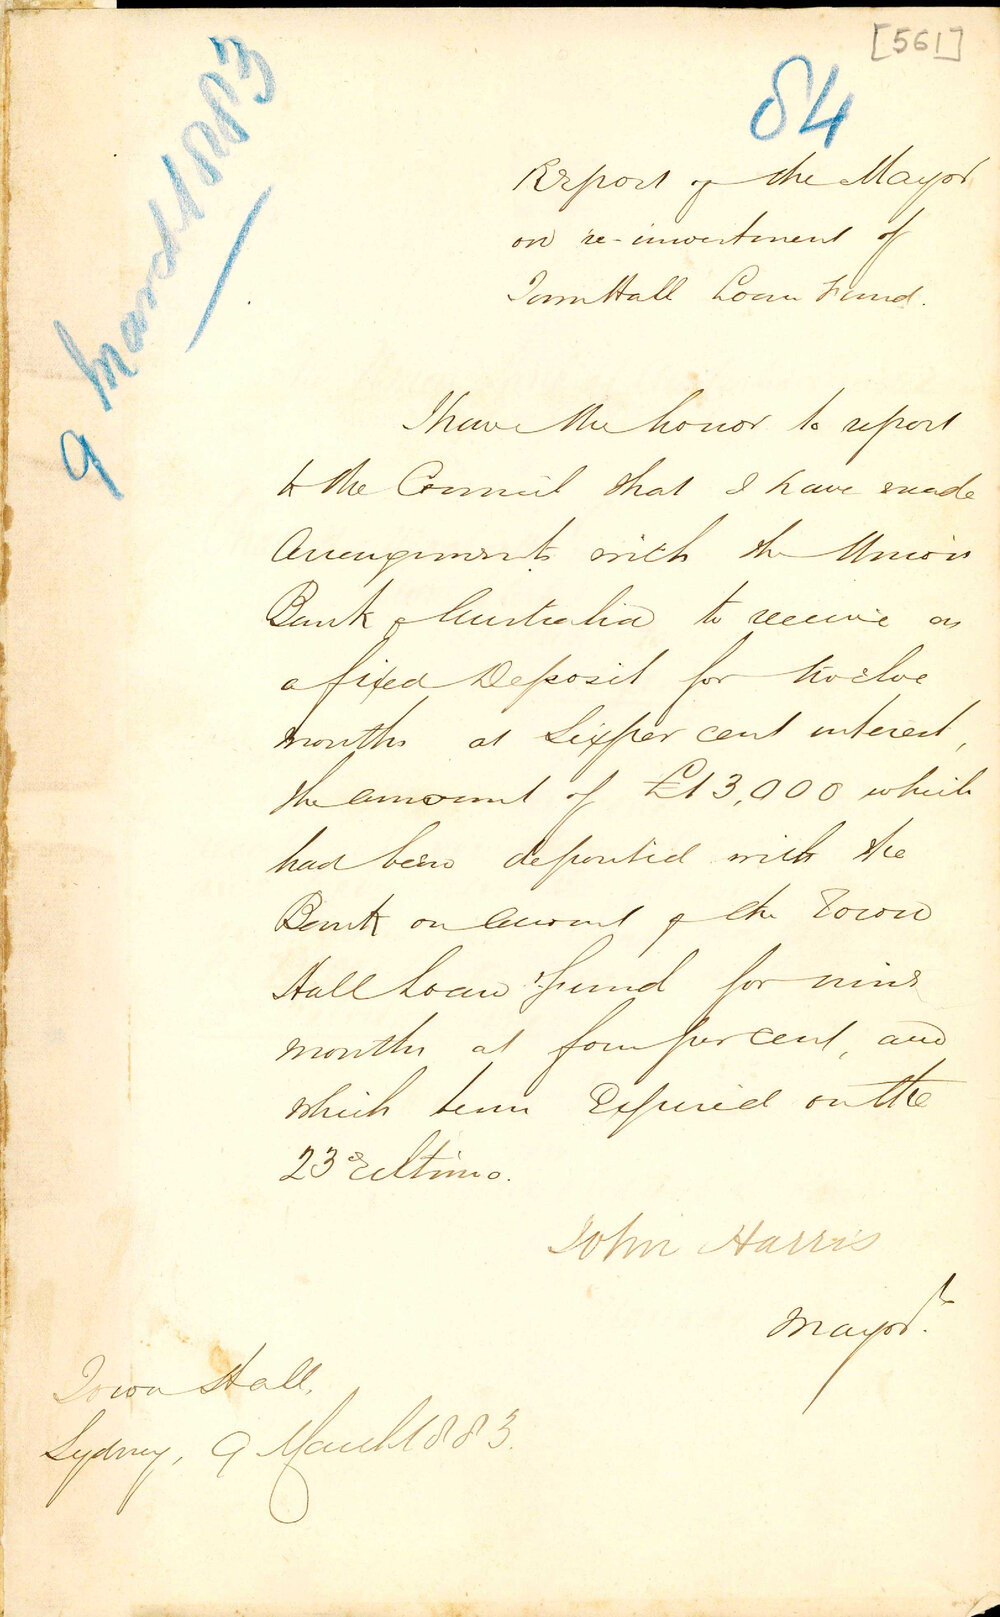 [561]
84
9 March 1883
Report of the Mayor
on re-investment of
Town Hall Loan Fund.
I have the honor to report
to the Council that I have made
Arrangements with the Union
Bank of Australia to receive as
a fixed Deposit for twelve
months at Six per cent interest,
the amount of £13,000 which
had been deposited with the
Bank on account of the Town
Hall Loan Fund for nine
months at four per cent, and
which term Expired on the
23rd Ultimo.
John Harris
Mayor.
Town Hall,
Sydney, 9 March 1883.